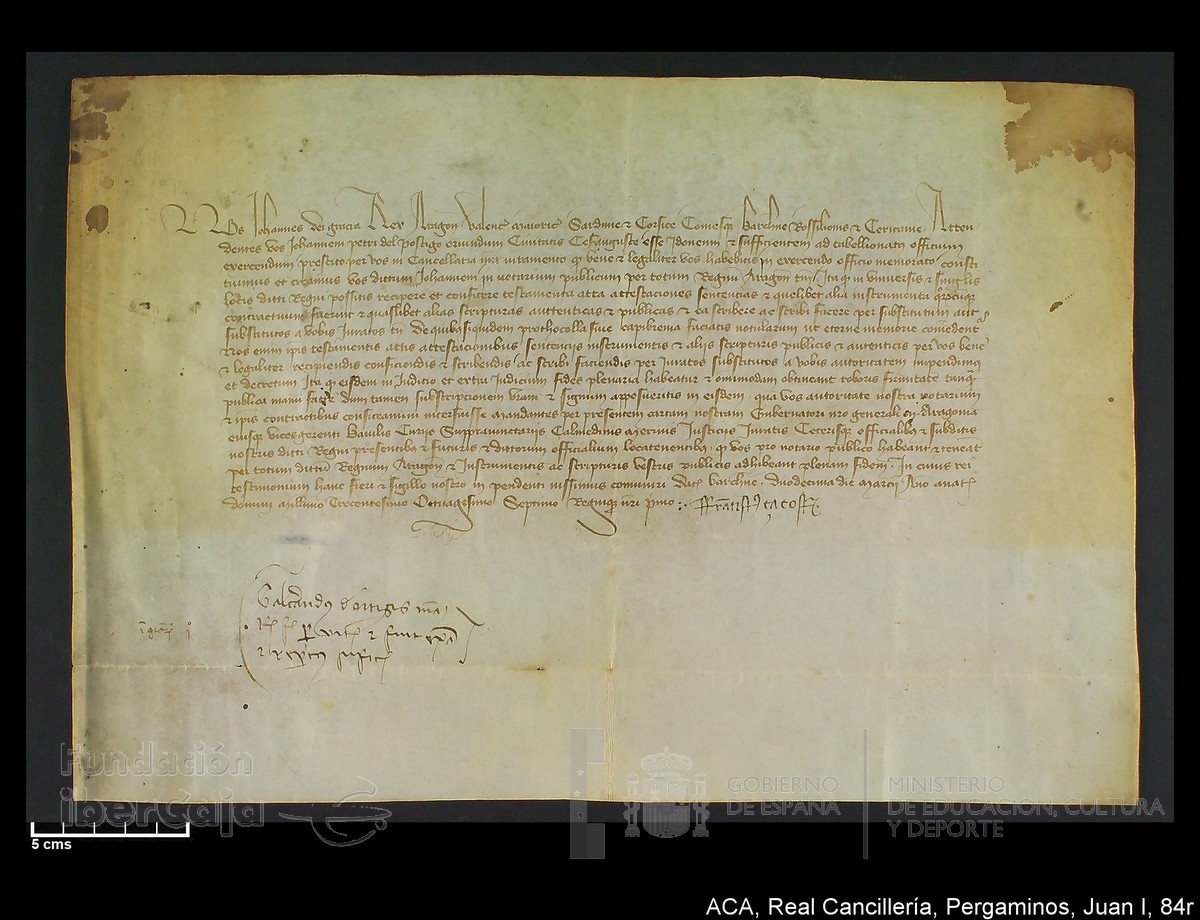 Nos Johannes dei gracia Rex Aragon Valencie Maiorice Sardinie et Corsice Comesque Barchinone Rossilionis et Ceritanie Atten
dentes vos Johannem petri del postigo oriundum Civitatis Cesarauguste esse Idoneum et sufficientem ad tabellionatus officium
exercendum prestito per vos in Cancellaria nostra iuramento quod bene et legaliter vos habebitis in exercendo officio memorato consti
tuimus et creamus vos dictum Johannem in notarium publicum per totum Regnum Aragon Ita quod in universis et singulis
locis dicti Regni possitis recipere et conficere testamenta acta attestaciones sentencias et quelibet alia instrumenta quorumcumque
contractuum fuerint et quaslibet alias scripturas auttenticas et publicas et ea scribere ac scribi facere per substitutum aut
substitutos a vobis Iuratos De quibus siquidem prothocolla sive capibrevia faciatis notularum ut eterne memorie comendentur
Nos enim ipsis testamentis actis attestacionibus sentenciis instrumentis et aliis scripturis publicis et autenticis per vos bene
et legaliter recipiendis conficiendis et scribendis ac scribi faciendis per Iuratos substitutos a vobis autoritatem impendimus
et decretum Ita quod eisdem in Iudicio et extra Iudicium fides plenaria habeatur et omnimodam obtineant roboris firmitatem tanquam
publica manu facte dum tamen subscripcionem vestram et signum apposueritis in eisdem qua vos autoritate nostra notarium
et ipsis contractibus conficeamini interfuisse Mandantes per presentem cartam nostram Gubernatori nostro generali in Aragonia
eiusque vicesgerenti Baiulis Curiis Suppraiunctariis Calmedinis Merinis Justiciis Iuratis Ceterisque officialibus et subditis
nostris dicti Regni presentibus et futuris et dictorum officialium locatenentibus quod vos pro notario publico habeant et teneant
per totum dictum Regnum Aragon et Instrumentis ac scripturis vestris publicis adhibeant plenam fidem In cuius rei
testimonium hanc fieri et sigillo nostro in pendenti iussimus comuniri Dat Barchinone duodecima die Marcii Anno a nat
domini Millesimo Trecentesimo Octuagesimo Septimo Regnique nostri primo
Galcerandus de ortigis
5 cms
Fundación
iberCaja
GOBIERNO
DE ESPAÑA
MINISTERIO
DE EDUCACIÓN, CULTURA
Y DEPORTE
ACA, Real Cancillería, Pergaminos, Juan I, 84r